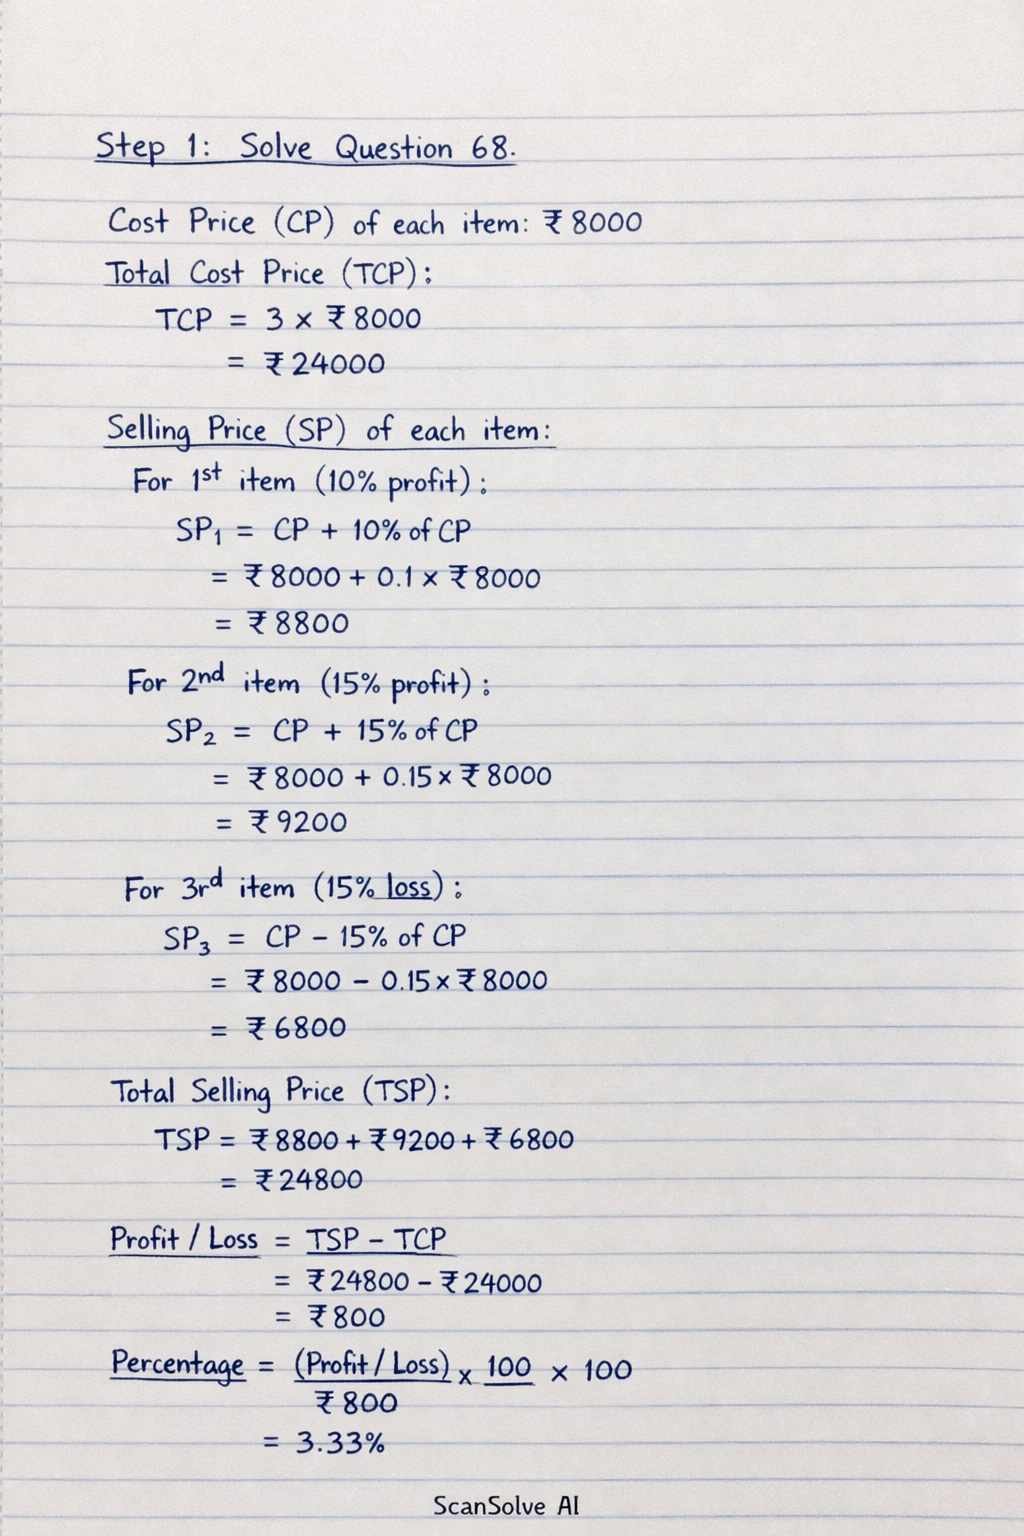 Step 1: Solve Question 68.
Cost Price (CP) of each item: ₹ 8000
Total Cost Price (TCP):
TCP = 3 × ₹ 8000
= ₹ 24000
Selling Price (SP) of each item:
For 1st item (10% profit):
SP₁ = CP + 10% of CP
= ₹ 8000 + 0.1 × ₹ 8000
= ₹ 8800
For 2nd item (15% profit):
SP₂ = CP + 15% of CP
= ₹ 8000 + 0.15 × ₹ 8000
= ₹ 9200
For 3rd item (15% loss):
SP₃ = CP - 15% of CP
= ₹ 8000 - 0.15 × ₹ 8000
= ₹ 6800
Total Selling Price (TSP):
TSP = ₹ 8800 + ₹ 9200 + ₹ 6800
= ₹ 24800
Profit / Loss = TSP - TCP
= ₹ 24800 - ₹ 24000
= ₹ 800
Percentage = (Profit / Loss) × 100 × 100
₹ 800
= 3.33%
ScanSolve AI